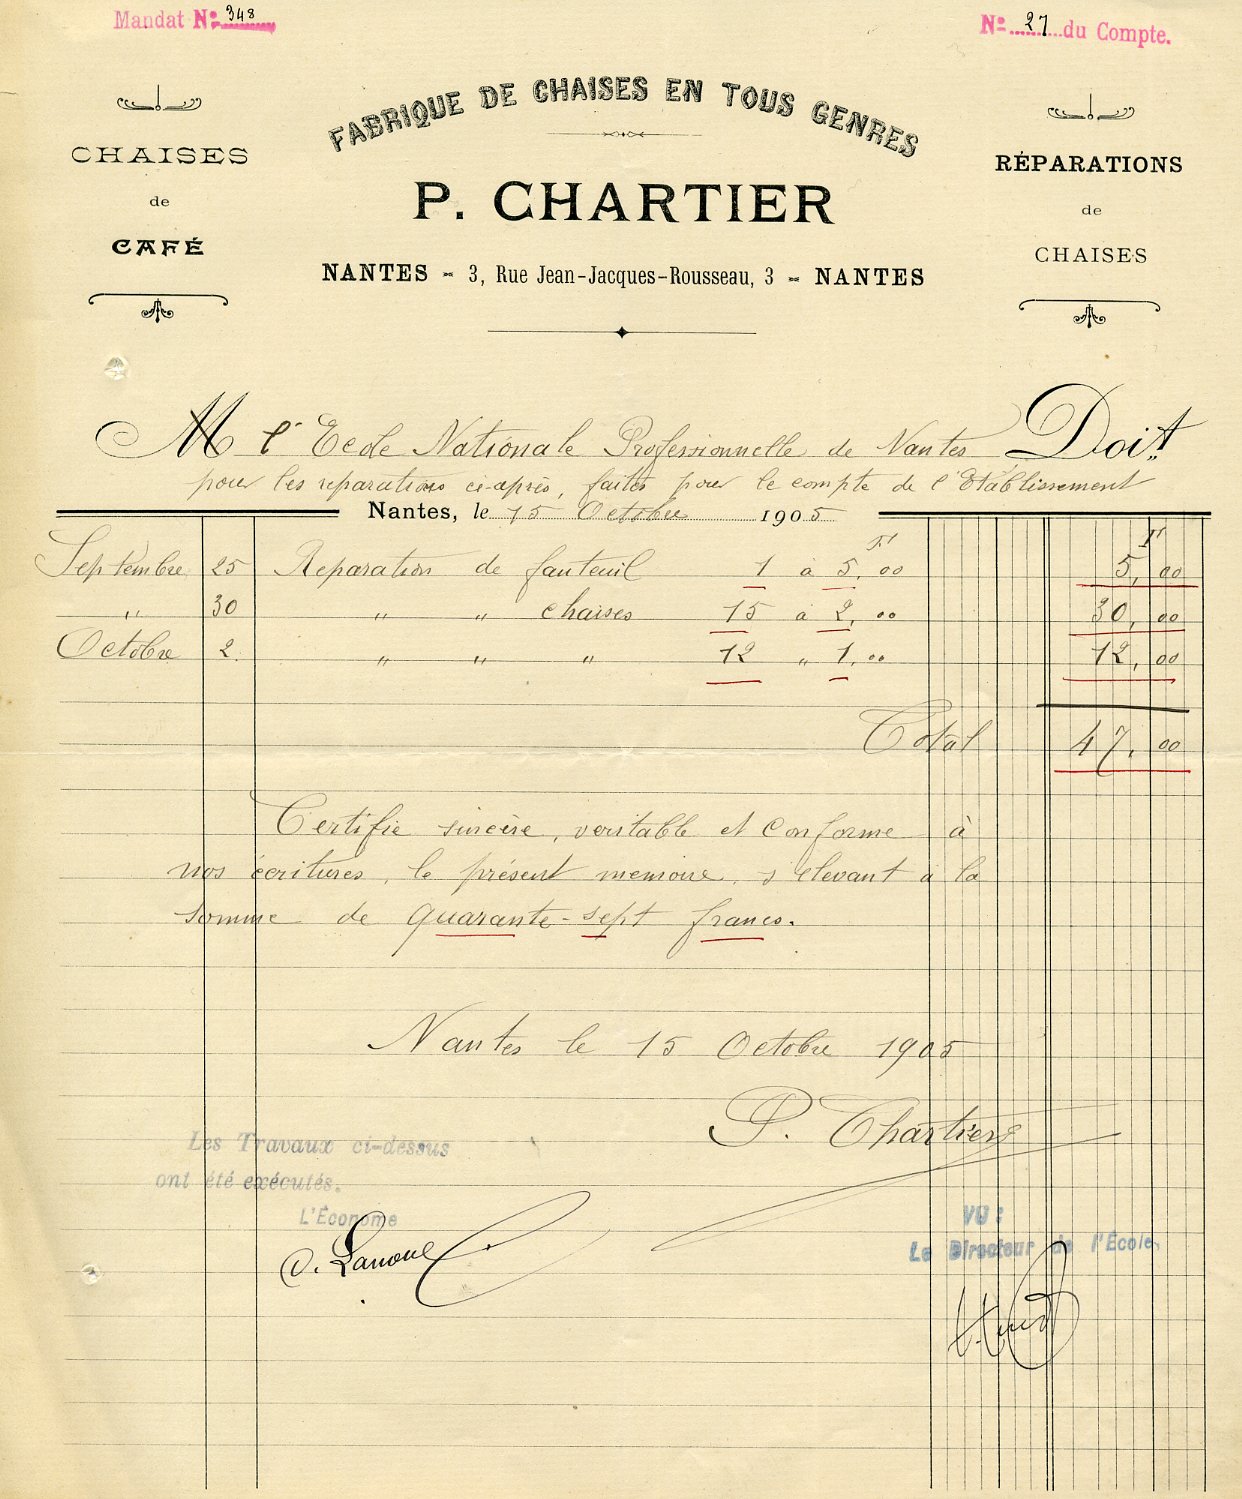 Mandat No 348
No 27 du Compte.
FABRIQUE DE CHAISES EN TOUS GENRES
CHAISES
de
CAFÉ
P. CHARTIER
RÉPARATIONS
de
CHAISES
NANTES - 3, Rue Jean-Jacques-Rousseau, 3 - NANTES
M l'Ecole Nationale Professionnelle de Nantes Doit
pour les reparations ci-après, faites pour le compte de l'Etablissement
Nantes, le 15 Octobre 1905
Septembre 25 Reparation de fauteuil 1 à 5,Fr00 5,Fr00
" 30 " " chaises 15 à 2,00 30,00
Octobre 2. " " " 12 " 1,00 12,00
Total 47,00
Certifie sincère, veritable et conforme à
nos écritures, le présent memoire, s'elevant à la
somme de quarante-sept francs.
Nantes le 15 Octobre 1905
P. Chartier
Les Travaux ci-dessus
ont été exécutés.
L'Économe
VU :
Le Directeur de l'École,